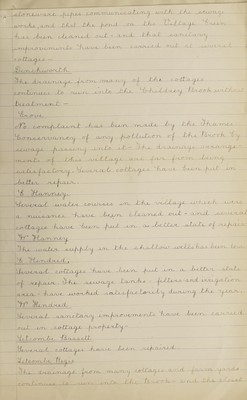 stoneware pipes communicating with the sewage
works, and that the pond on the Village Green
has been cleaned out - and that sanitary
improvements have been carried out at several
cottages -
Denchworth
The drainage from many of the cottages
continues to run into the Childrey Brook without
treatment -
Grove
No complaint has been made by the Thames
Conservancy of any pollution of the Brook by
sewage passing into it. The drainage arrange-
ments of this village are far from being
satisfactory. Several cottages have been put in
better repair
E. Hanney.
Several water courses in the village which were
a nuisance have been cleaned out - and several
cottages have been put in a better state of repair.
W. Hanney
The water supply in the shallow wells has been low
E. Hendred.
Several cottages have been put in a better state
of repair. The sewage tanks - filters and irrigation
area - have worked satisfactorily during the year.
W. Hendred
Several sanitary improvements have been carried
out in cottage property.
Letcombe Bassett
Several cottages have been repaired.
Letcombe Regis
The drainage from many cottages and farm yards
continues to run into the Brook - and the